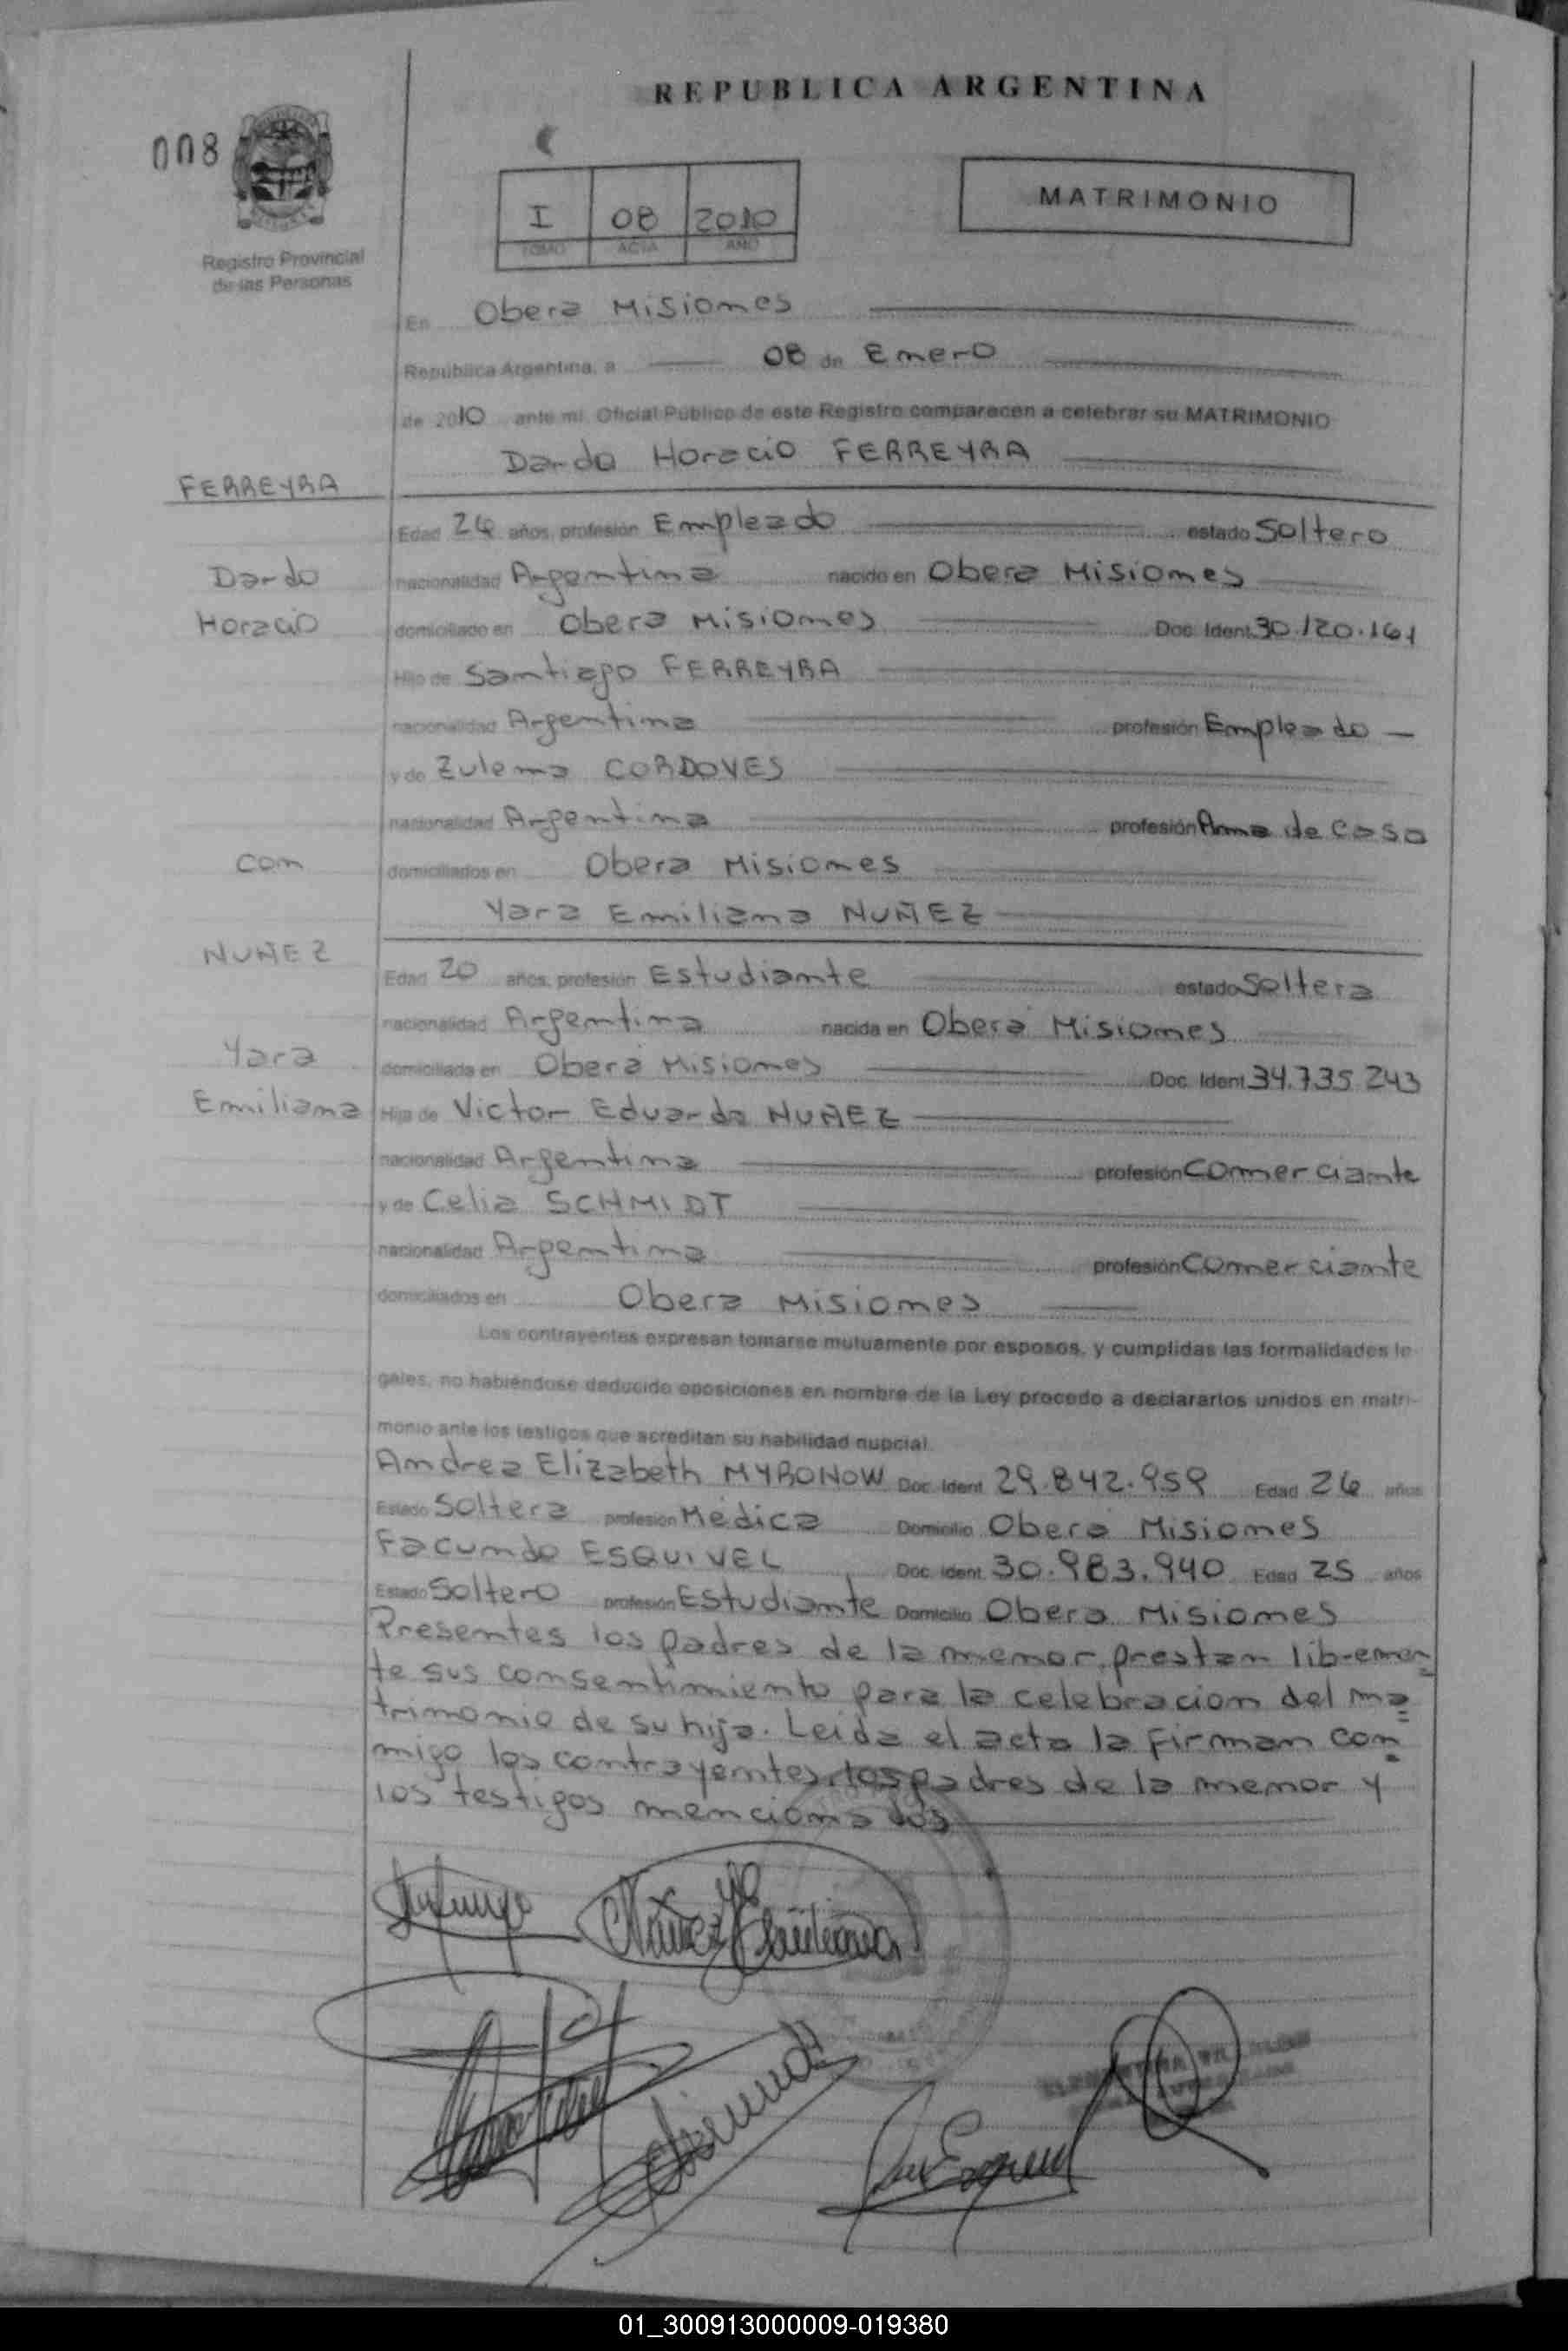 REPUBLICA ARGENTINA
008
I 08 2010
TOMO ACTA AÑO
MATRIMONIO
Registro Provincial
de las Personas
En Obera Misiones
República Argentina, a 08 de Enero
de 2010 ante mi, Oficial Público de este Registro comparecen a celebrar su MATRIMONIO
Dardo Horacio FERREYRA
FERREYRA
Edad 26 años, profesión Empleado estado Soltero
Dardo
nacionalidad Argentina nacido en Obera Misiones
Horacio
domiciliado en Obera Misiones Doc. Ident. 30.120.161
Hijo de Santiago FERREYRA
nacionalidad Argentina profesión Empleado
y de Zulema CORDOVES
nacionalidad Argentina profesión Ama de Casa
con
domiciliados en Obera Misiones
Yara Emiliana NUÑEZ
NUÑEZ
Edad 20 años, profesión Estudiante estado Soltera
nacionalidad Argentina nacida en Oberá Misiones
Yara
domiciliada en Oberá Misiones Doc. Ident. 34.735.243
Emiliana
Hija de Victor Eduardo NUÑEZ
nacionalidad Argentina profesión Comerciante
y de Celia SCHMIDT
nacionalidad Argentina profesión Comerciante
domiciliados en Obera Misiones
Los contrayentes expresan tomarse mutuamente por esposos, y cumplidas las formalidades le-
gales, no habiéndose deducido oposiciones en nombre de la Ley procedo a declararlos unidos en matri-
monio ante los testigos que acreditan su habilidad nupcial.
Andrea Elizabeth MYRONOW Doc. Ident. 29.842.959 Edad 26 años
Estado Soltera profesión Médica Domicilio Oberá Misiones
Facundo ESQUIVEL Doc. Ident. 30.983.940 Edad 25 años
Estado Soltero profesión Estudiante Domicilio Obera Misiones
Presentes los padres de la menor, prestan libremen
te sus consentimiento para la celebracion del ma
trimonio de su hija. Leida el acta la firman con
migo los contrayentes, los padres de la menor y
los testigos mencionados
Nuñez Y Emiliana
01_300913000009-019380